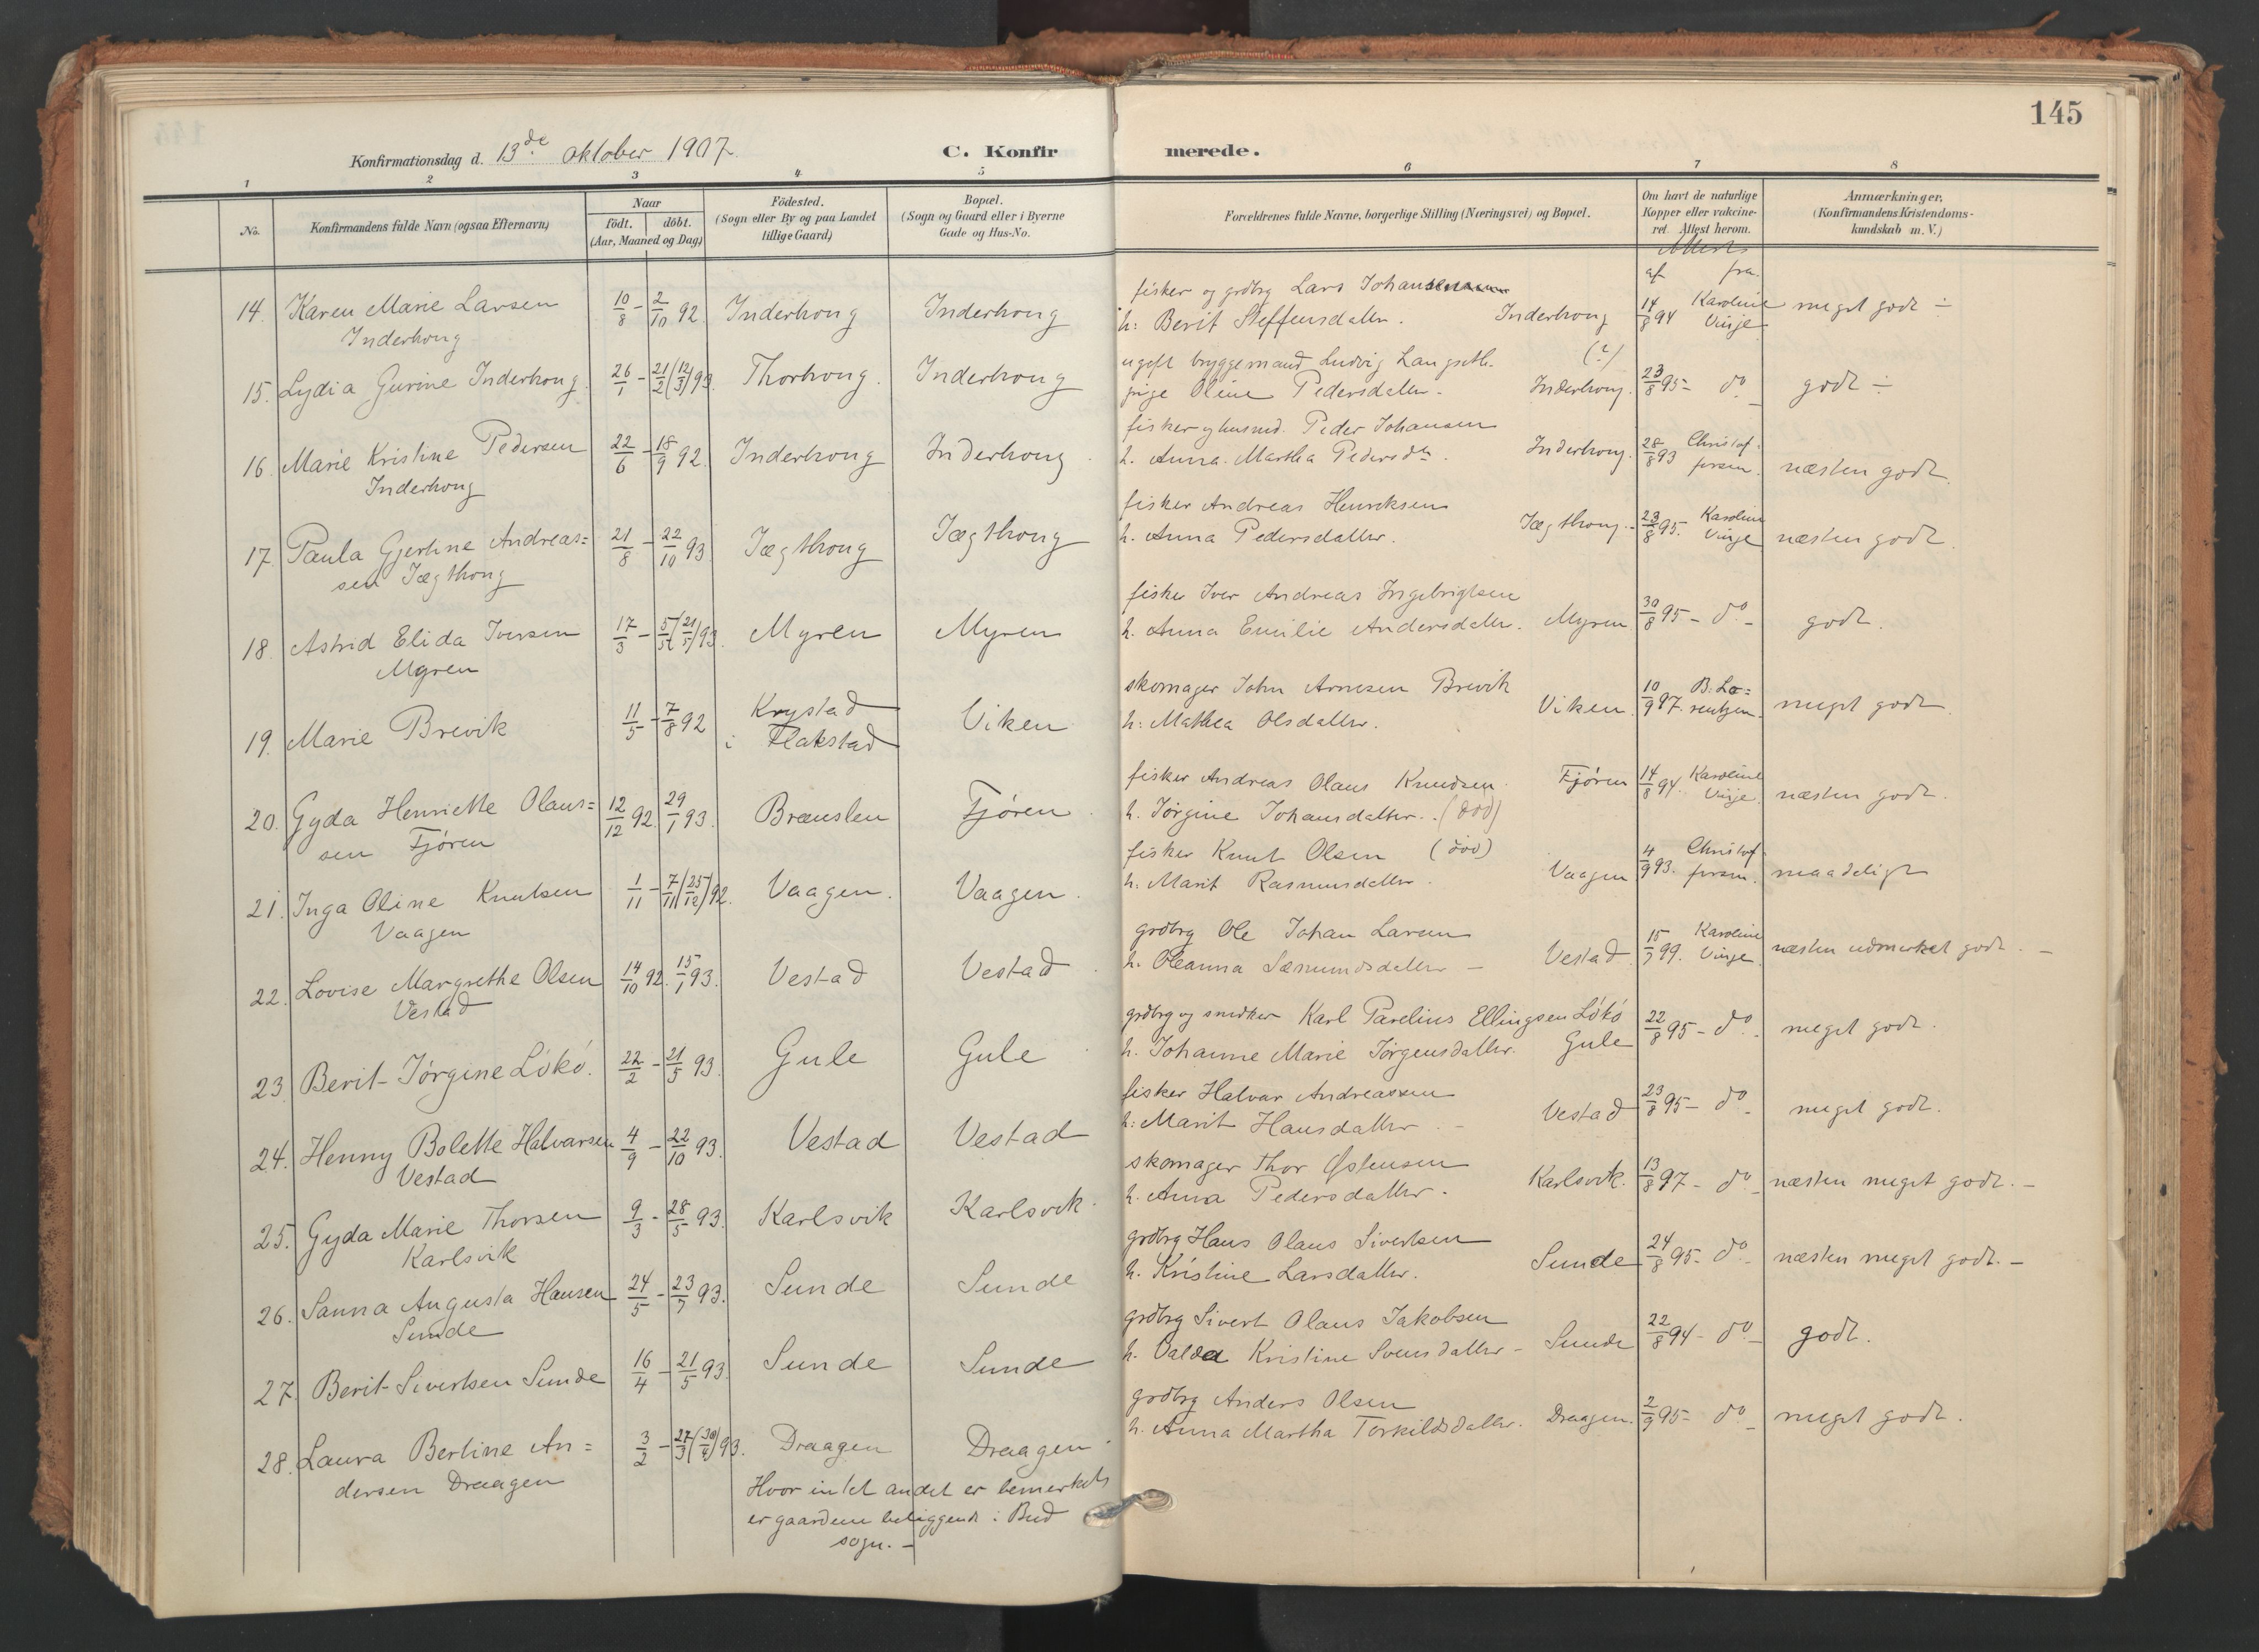 145
Konfirmationsdag d. 13de oktober 1907.
C. Konfirmerede.
1 2 3 4 5 6 7 8
No.
Konfirmandens fulde Navn (ogsaa Efternavn)
Naar
födt. döbt.
(Aar, Maaned og Dag)
Födested.
(Sogn eller By og paa Landet
tillige Gaard)
Bopæl.
(Sogn og Gaard eller i Byerne
Gade og Hus-No.
Forældrenes fulde Navne, borgerlige Stilling (Næringsvei) og Bopæl.
Om havt de naturlige
Kopper eller vakcine-
ret. Attest herom.
Anmærkninger,
(Konfirmandens Kristendoms-
kundskab m. V.)
Attest
af fra
14. Karen Marie Larsen 10/8 - 2/10 92 Inderhoug Inderhoug fisker og grdbrg Lars Johansen
Inderhoug h: Berit Steffensdatter. Inderhoug 14/8 94 Karoline Vinje meget godt
15. Lydia Gurine Inderhoug 26/1 - 21/2 (12/3) 93 Thorhoug. Inderhoug ugift bryggemand Ludvig Langseth. (?)
pige Oline Pedersdatter. Inderhoug. 23/8 95 - do godt
16. Marie Kristine Pedersen 22/6 - 18/9 92 Inderhoug Inderhoug fisker og husmd. Peder Johansen
Inderhoug h. Anna Martha Pedersdtr. Inderhoug. 28/8 93 Christoffersen. næsten godt.
17. Paula Gjertine Andreas= 21/8 - 22/10 93 Jægthoug Jægthoug fisker Andreas Henriksen
sen Jægthoug h. Anna Pedersdatter. Jægthoug. 23/8 95. Karoline Vinje næsten godt.
18. Astrid Elida Iversen 17/3 - 5/5 (21/5) 93. Myren Myren fisker Iver Andreas Ingebrigtsen
Myren h. Anna Emilie Andersdatter. Myren 30/8 95 - do - godt.
19. Marie Brevik 11/5 - 7/8 92 Krystad Viken skomager John Arnesen Brevik
i Flakstad h: Mathea Olsdatter. Viken 10/9 97. B. Lo= rentzen. meget godt.
20. Gyda Henriette Olaus= 12/12 92. 29/1 93. Brænslen Fjøren fisker Andreas Olaus Knudsen. Fjøren
sen Fjøren h. Jørgine Johansdatter. (død) 14/8 94. Karoline Vinje næsten godt.
21. Inga Oline Knutsen 1/11 - 7/11 (25/12) 92. Vaagen. Vaagen. fisker Knut Olsen (død)
Vaagen h: Marit Rasmusdatter. Vaagen 4/9 93. Christoffersen. maadeligt
22. Lovise Margrethe Olsen 14/10 92. 15/1 93. Vestad Vestad grdbrg Ole Johan Larsen
Vestad h. Oleanna Sæmundsdatter - Vestad. 15/7 99. Karoline Vinje næsten udmerket godt. -
23. Berit Jörgine Lökö. 22/2 - 21/5 93. Gule Gule grdbrg og snedker Karl Parelius Ellingsen Lökö
h. Johanne Marie Jörgensdatter. Gule 22/8 95 - do - meget godt.
24. Henny Bolette Halvarsen 4/9 - 22/10 93. Vestad Vestad fisker Halvar Andreassen
Vestad h: Marit Hansdatter - Vestad 23/8 95 - do - meget godt.
25. Gyda Marie Thorsen 9/3 - 28/5 93. Karlsvik Karlsvik. skomager Thor Østensen
Karlsvik h. Anna Pedersdatter. Karlsvik. 13/8 97 - do - næsten meget godt. -
26. Sanna Augusta Hansen 24/5 - 23/7 93. Sunde Sunde grdbrg Hans Olaus Sivertsen
Sunde h. Kristine Larsdatter. Sunde 24/8 95 - do - næsten meget godt. -
27. Berit Sivertsen Sunde 16/4 - 21/5 93. Sunde Sunde grdbrg Sivert Olaus Jakobsen
h. Valda Kristine Svensdatter - Sunde 22/8 94 - do - godt.
28. Laura Bertine An= 3/2 - 27/3 (30/4) 93. Draagen Draagen grdbrg Anders Olsen
dersen Draagen h. Anna Martha Torkildsdatter. Draagen. 2/9 95 - do - meget godt.
Hvor intet andet er bemerket,
er gaardene beliggende i Bud
sogn. -